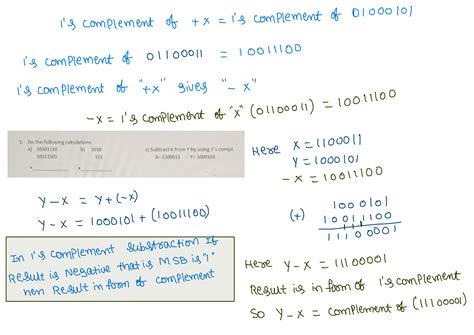 1's complement of +x = 1's complement of 01000101
1's complement of 01100011 = 10011100
1's complement of "+x" gives "-x"
-x = 1's complement of "x" (01100011) = 10011100
1. Do the following calculations.
a) 10101110 b) 1010 c) Subtract X from Y by using 1's compl.
10111101 111 X= 1100011 Y= 1000101
Here X = 1100011
Y = 1000101
-X = 10011100
Y-X = Y+(-X)
Y-X = 1000101 + (10011100)
1000101
(+) 10011100
11100001
In 1's complement substraction If
Result is Negative that is MSB is "1"
hen Result in form of complement
Here Y-X = 11100001
Result is in form of 1's complement
So Y-X = complement of (1110001)